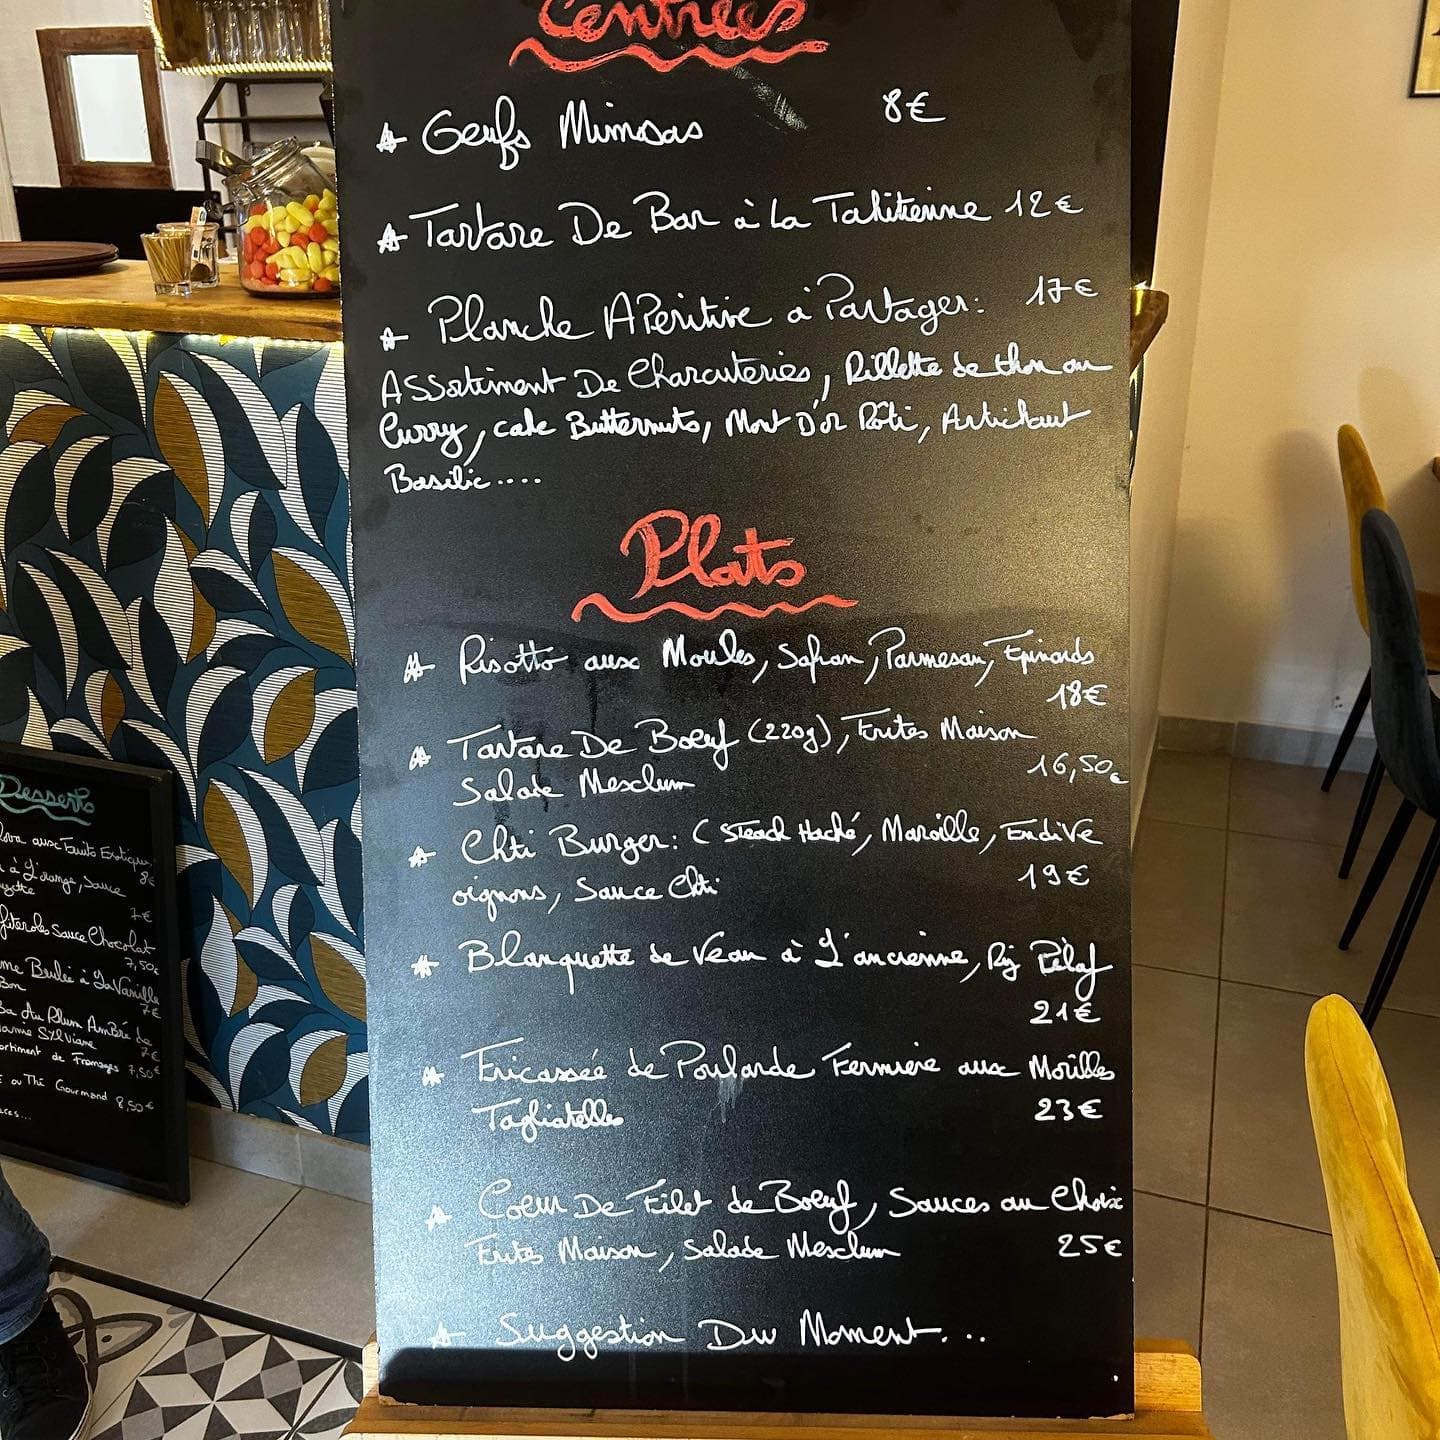 Entrées
Oeufs Mimosas 8€
Tartare De Bar à La Tahitienne 12€
Planche APéritive à Partager: 17€
ASSortiment De Charcuteries, Rillette de thon au
Curry, cake Butternuts, Mont D'or Rôti, Artichaut
Basilic....
Plats
Risotto aux Moules, Safran, Parmesan, Epinards
18€
Tartare De Boeuf (220g), Frites Maison
16,50€
Salade Mesclum
Chti Burger: (Steack Haché, Maroille, Endive
oignons, Sauce Chti 19€
Blanquette de Veau à L'ancienne, Riz Pilaf
21€
Fricassée de Poularde Fermière aux Morilles
Tagliatelles 23€
Coeur De Filet de Boeuf, Sauces au Choix
Frites Maison, Salade Mesclum 25€
Suggestion Du Moment...
Desserts
aux Fruits Exotiques,
8€
à L'orange, Sauce
7€
Sauce Chocolat
7,50€
Brulée à La Vanille
7€
Au Rhum Ambré de
Sylviane 7€
de Fromages 7,50€
ou Thé Gourmand 8,50€